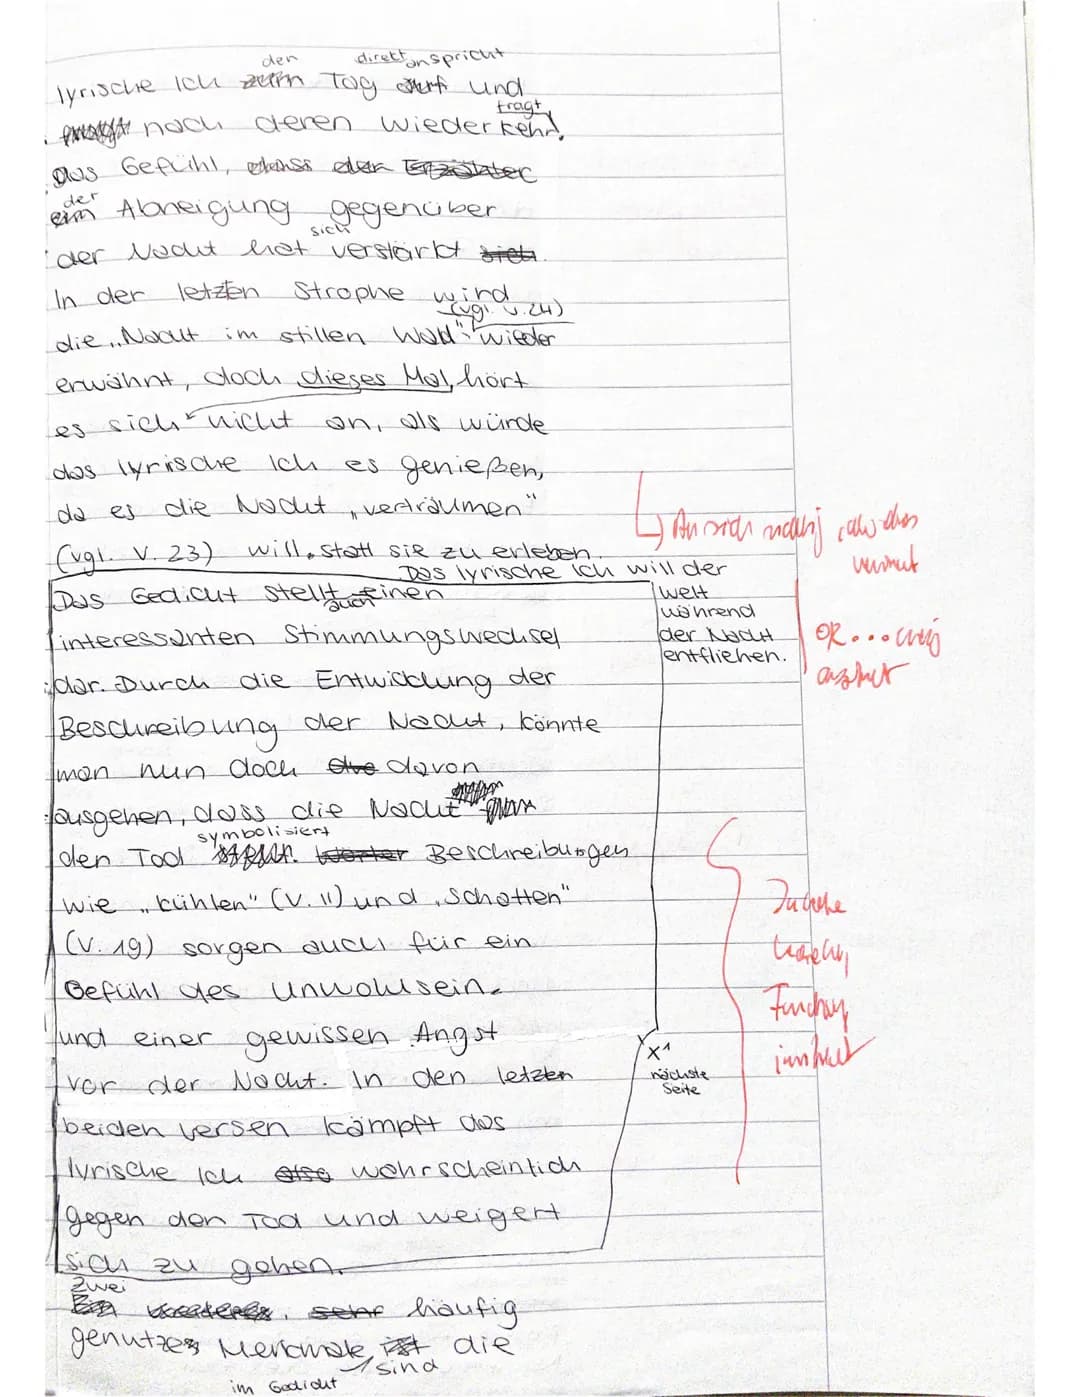 den direkt anspricht
lyrische Ich zum Tag auf und
fragt,
nach deren Wiederkehr.
Das Gefühl, dass der Erzähler
der
ein Abneigung gegenüber
sich
der Nacht hat verstärkt sich.
In der letzten Strophe wird
(vgl. V.24)
die „Nacht im stillen Wald" wieder
erwähnt, doch dieses Mal, hört
es sich nicht an, als würde
das lyrische Ich es genießen,
da es die Nacht „verträumen"
(vgl. V. 23) will, statt sie zu erleben.
Das lyrische Ich will der
Welt
während
der Nacht
entfliehen.
An sich richtig,
Das Gedicht stellt einen
auch
interessanten Stimmungswechsel
dar. Durch die Entwicklung der
Beschreibung der Nacht, könnte
man nun doch davon
ausgehen, dass die Nacht
symbolisiert
den Tod Wörter Beschreibungen
wie „kühlen" (V. 11) und „Schatten"
(V. 19) sorgen auch für ein
Gefühl des Unwohlseins
und einer gewissen Angst
vor der Nacht. In den letzten
beiden Versen kämpft das
lyrische Ich also wahrscheinlich
gegen den Tod und weigert
sich zu gehen.
x¹
nächste
Seite
Zwei
Ein weiteres, sehr häufig
genutzes Merkmale ist die
sind
im Gedicht